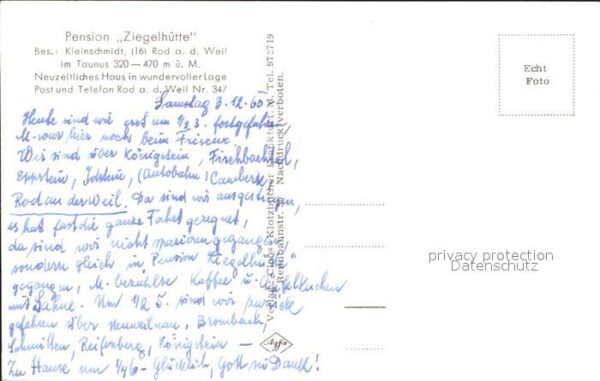 Pension „Ziegelhütte"
Bes.: Kleinschmidt, (16) Rod a. d. Weil
im Taunus 320—470 m ü. M.
Neuzeitliches Haus in wundervoller Lage
Post und Telefon Rod a. d. Weil Nr. 347
Samstag 3.12.60
Heute sind wir erst um 1/2 3. fortgefahren
M- war hier noch beim Friseur.
Wir sind über Königstein, Fischbachtal,
Eppstein, Idstein, (Autobahn) Camberg,
Rod an der Weil. Da sind wir ausgestiegen,
es hat fast die ganze Fahrt geregnet,
da sind wir nicht spazieren gegangen
sondern gleich in "Pension Ziegelhütte"
gegangen, M- bezahlte Kaffee u. Apfelkuchen
mit Sahne. Um 1/2 5. sind wir zurück
gefahren über Neuweilnau, Brombach,
Schmitten, Reifenberg, Königstein —
Zu Hause um 1/4 6- Glücklich, Gott sei Dank!
Verlag: Cloos & Klotzbücher, Frankfurt M. Tel. 972719
Nachdruck verboten.
Echt
Foto
privacy protection
Datenschutz
Agfa